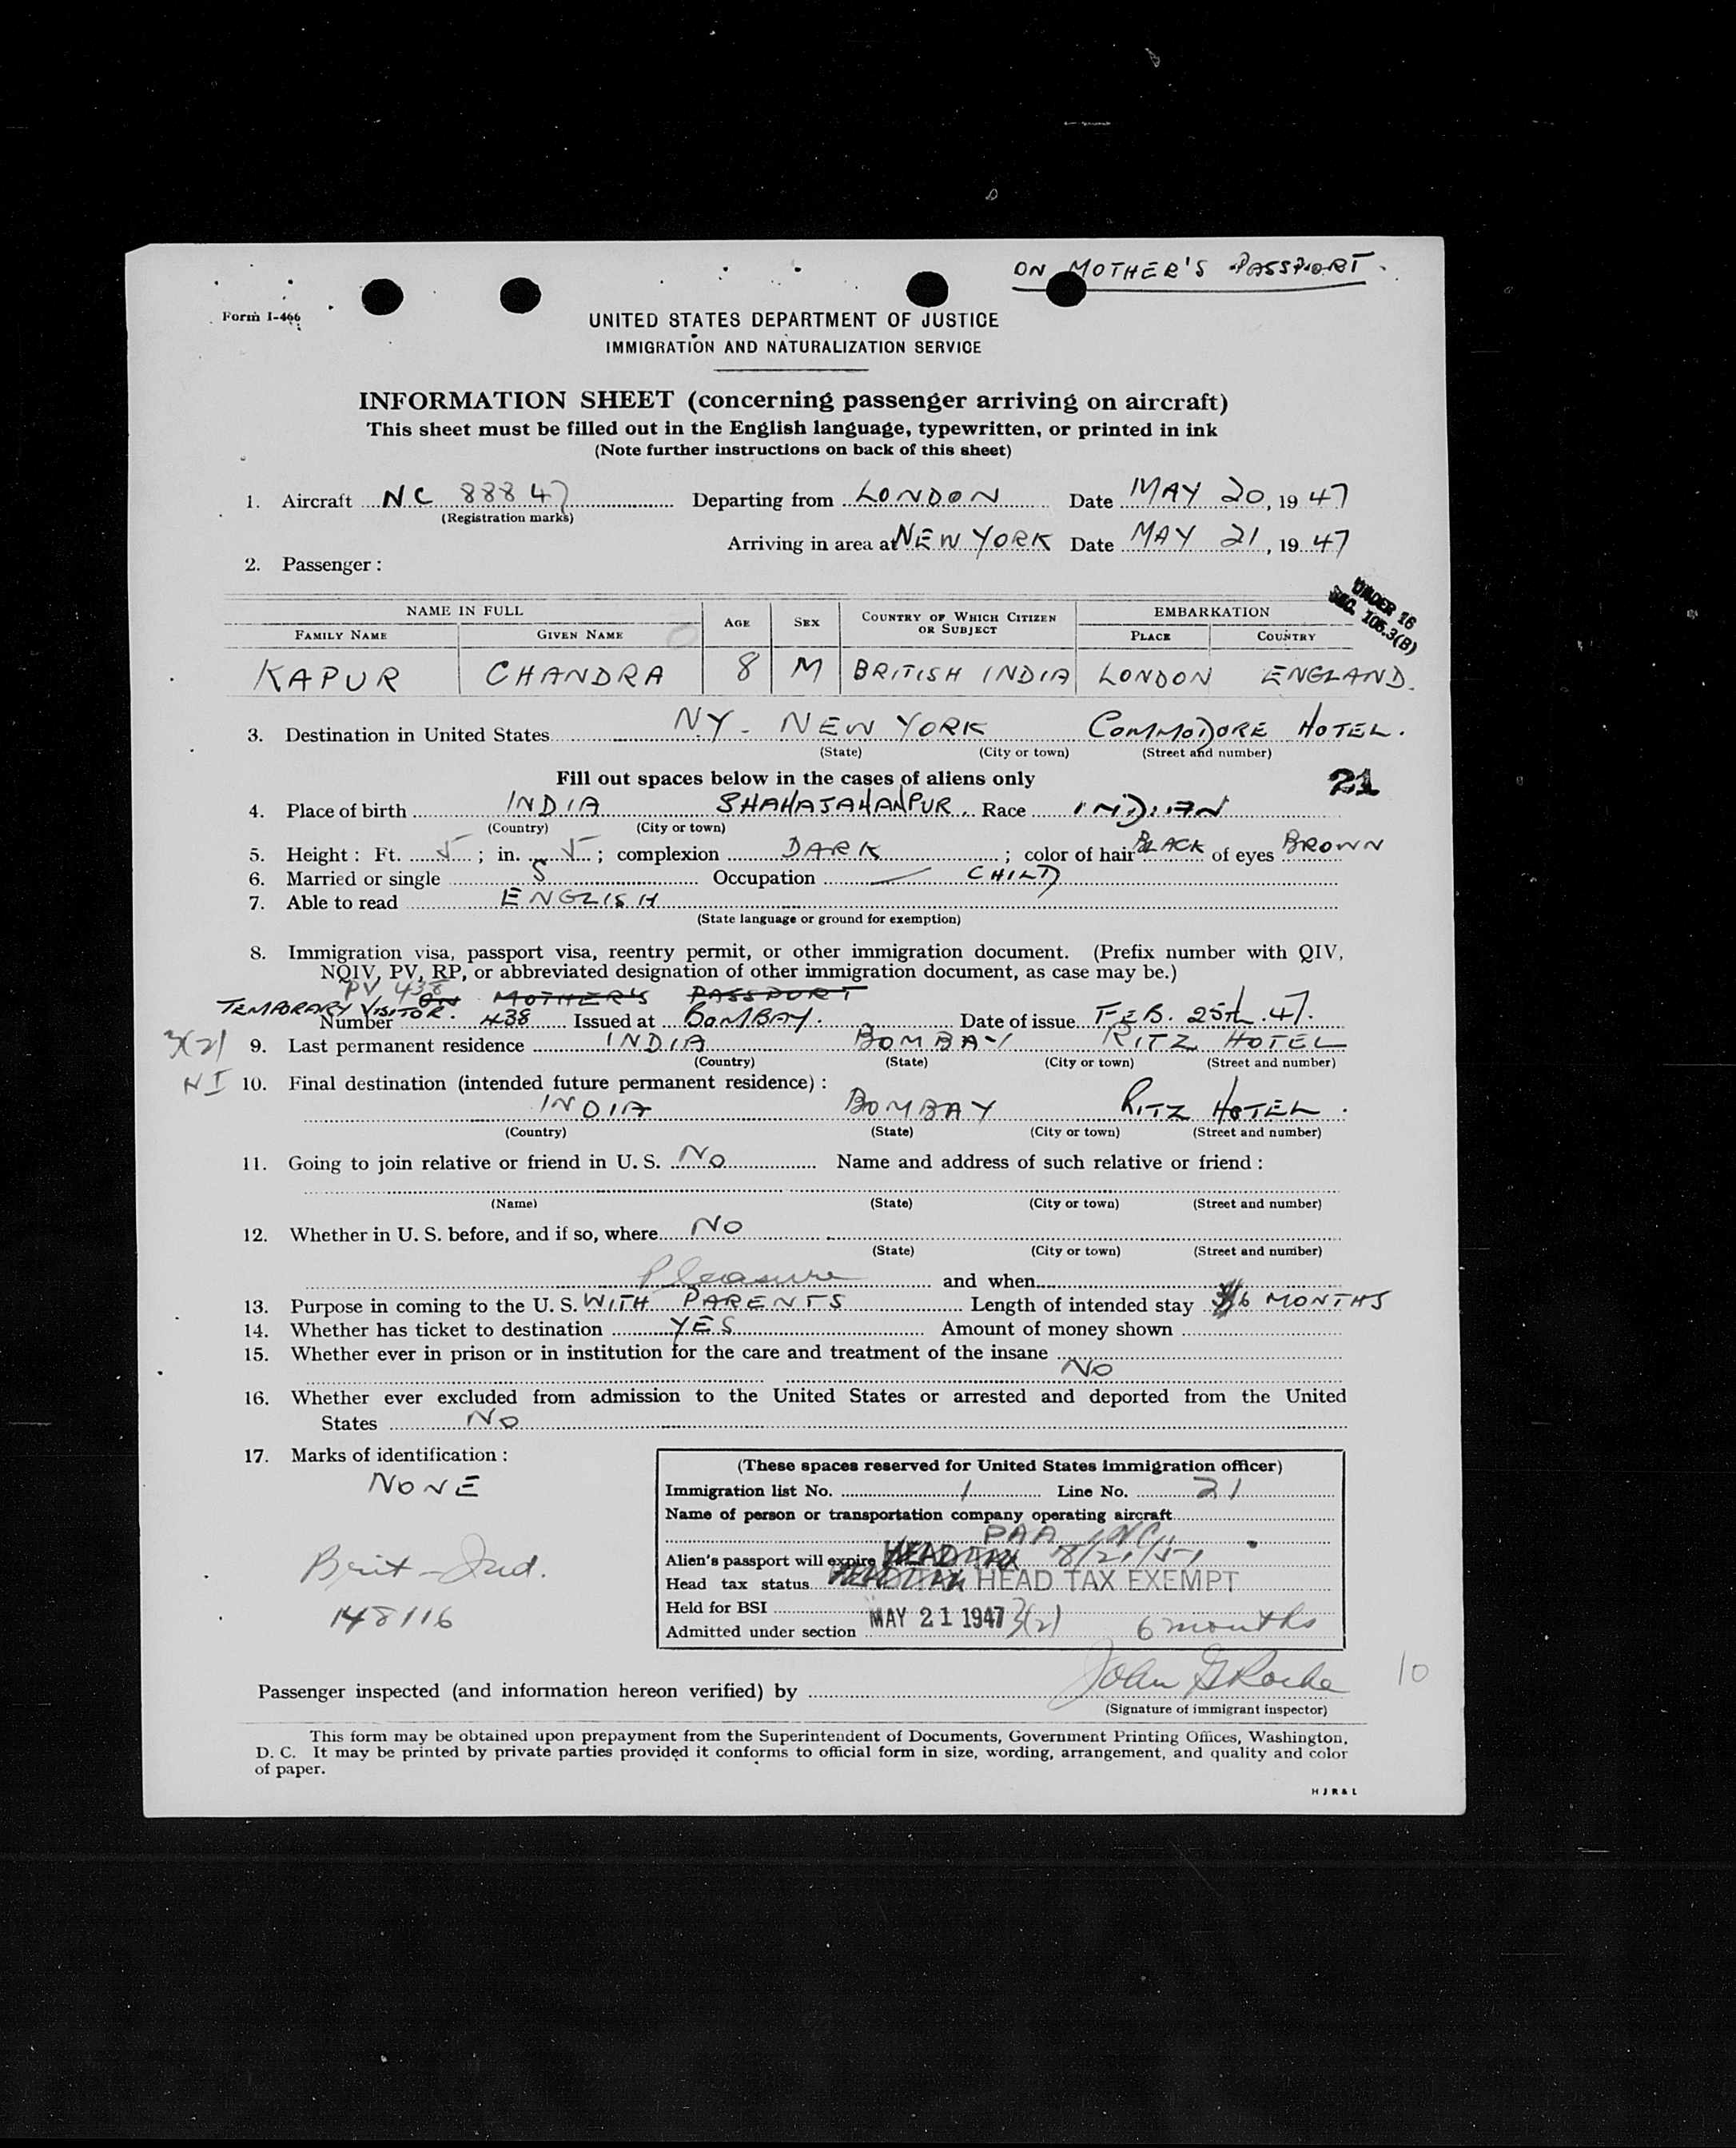 ON MOTHER'S PASSPORT.
Form I-466
UNITED STATES DEPARTMENT OF JUSTICE
IMMIGRATION AND NATURALIZATION SERVICE
INFORMATION SHEET (concerning passenger arriving on aircraft)
This sheet must be filled out in the English language, typewritten, or printed in ink
(Note further instructions on back of this sheet)
1. Aircraft NC 88847 Departing from LONDON Date MAY 20, 1947
(Registration marks)
Arriving in area at NEW YORK Date MAY 21, 1947
2. Passenger:
UNDER 16
SEC. 106.3(B)
NAME IN FULL AGE SEX COUNTRY OF WHICH CITIZEN OR SUBJECT EMBARKATION
FAMILY NAME GIVEN NAME PLACE COUNTRY
KAPUR CHANDRA 8 M BRITISH INDIA LONDON ENGLAND.
3. Destination in United States NY - NEW YORK COMMODORE HOTEL.
(State) (City or town) (Street and number)
Fill out spaces below in the cases of aliens only 21
4. Place of birth INDIA SHAHAJAHANPUR. Race INDIAN
(Country) (City or town)
5. Height: Ft. 5; in. 5; complexion DARK; color of hair BLACK of eyes BROWN
6. Married or single S Occupation CHILD
7. Able to read ENGLISH
(State language or ground for exemption)
8. Immigration visa, passport visa, reentry permit, or other immigration document. (Prefix number with QIV,
NQIV, PV, RP, or abbreviated designation of other immigration document, as case may be.)
PV 438 ON MOTHER'S PASSPORT
TEMPORARY VISITOR.
Number 438 Issued at BOMBAY. Date of issue FEB. 25th. 47.
3(2) 9. Last permanent residence INDIA BOMBAY RITZ HOTEL
(Country) (State) (City or town) (Street and number)
NI 10. Final destination (intended future permanent residence):
INDIA BOMBAY RITZ HOTEL.
(Country) (State) (City or town) (Street and number)
11. Going to join relative or friend in U. S. NO Name and address of such relative or friend:
(Name) (State) (City or town) (Street and number)
12. Whether in U. S. before, and if so, where NO
(State) (City or town) (Street and number)
Pleasure and when
13. Purpose in coming to the U. S. WITH PARENTS Length of intended stay 6 MONTHS
14. Whether has ticket to destination YES Amount of money shown
15. Whether ever in prison or in institution for the care and treatment of the insane
NO
16. Whether ever excluded from admission to the United States or arrested and deported from the United
States NO
17. Marks of identification:
NONE
Brit-Ind.
148116
(These spaces reserved for United States immigration officer)
Immigration list No. 1 Line No. 21
Name of person or transportation company operating aircraft
PAA INC
Alien's passport will expire HEAD TAX 8/21/51
Head tax status HEAD TAX EXEMPT
Held for BSI
Admitted under section MAY 21 1947 3(2) 6 months
John G Roche 10
Passenger inspected (and information hereon verified) by
(Signature of immigrant inspector)
This form may be obtained upon prepayment from the Superintendent of Documents, Government Printing Offices, Washington,
D. C. It may be printed by private parties provided it conforms to official form in size, wording, arrangement, and quality and color
of paper.
H J R & L